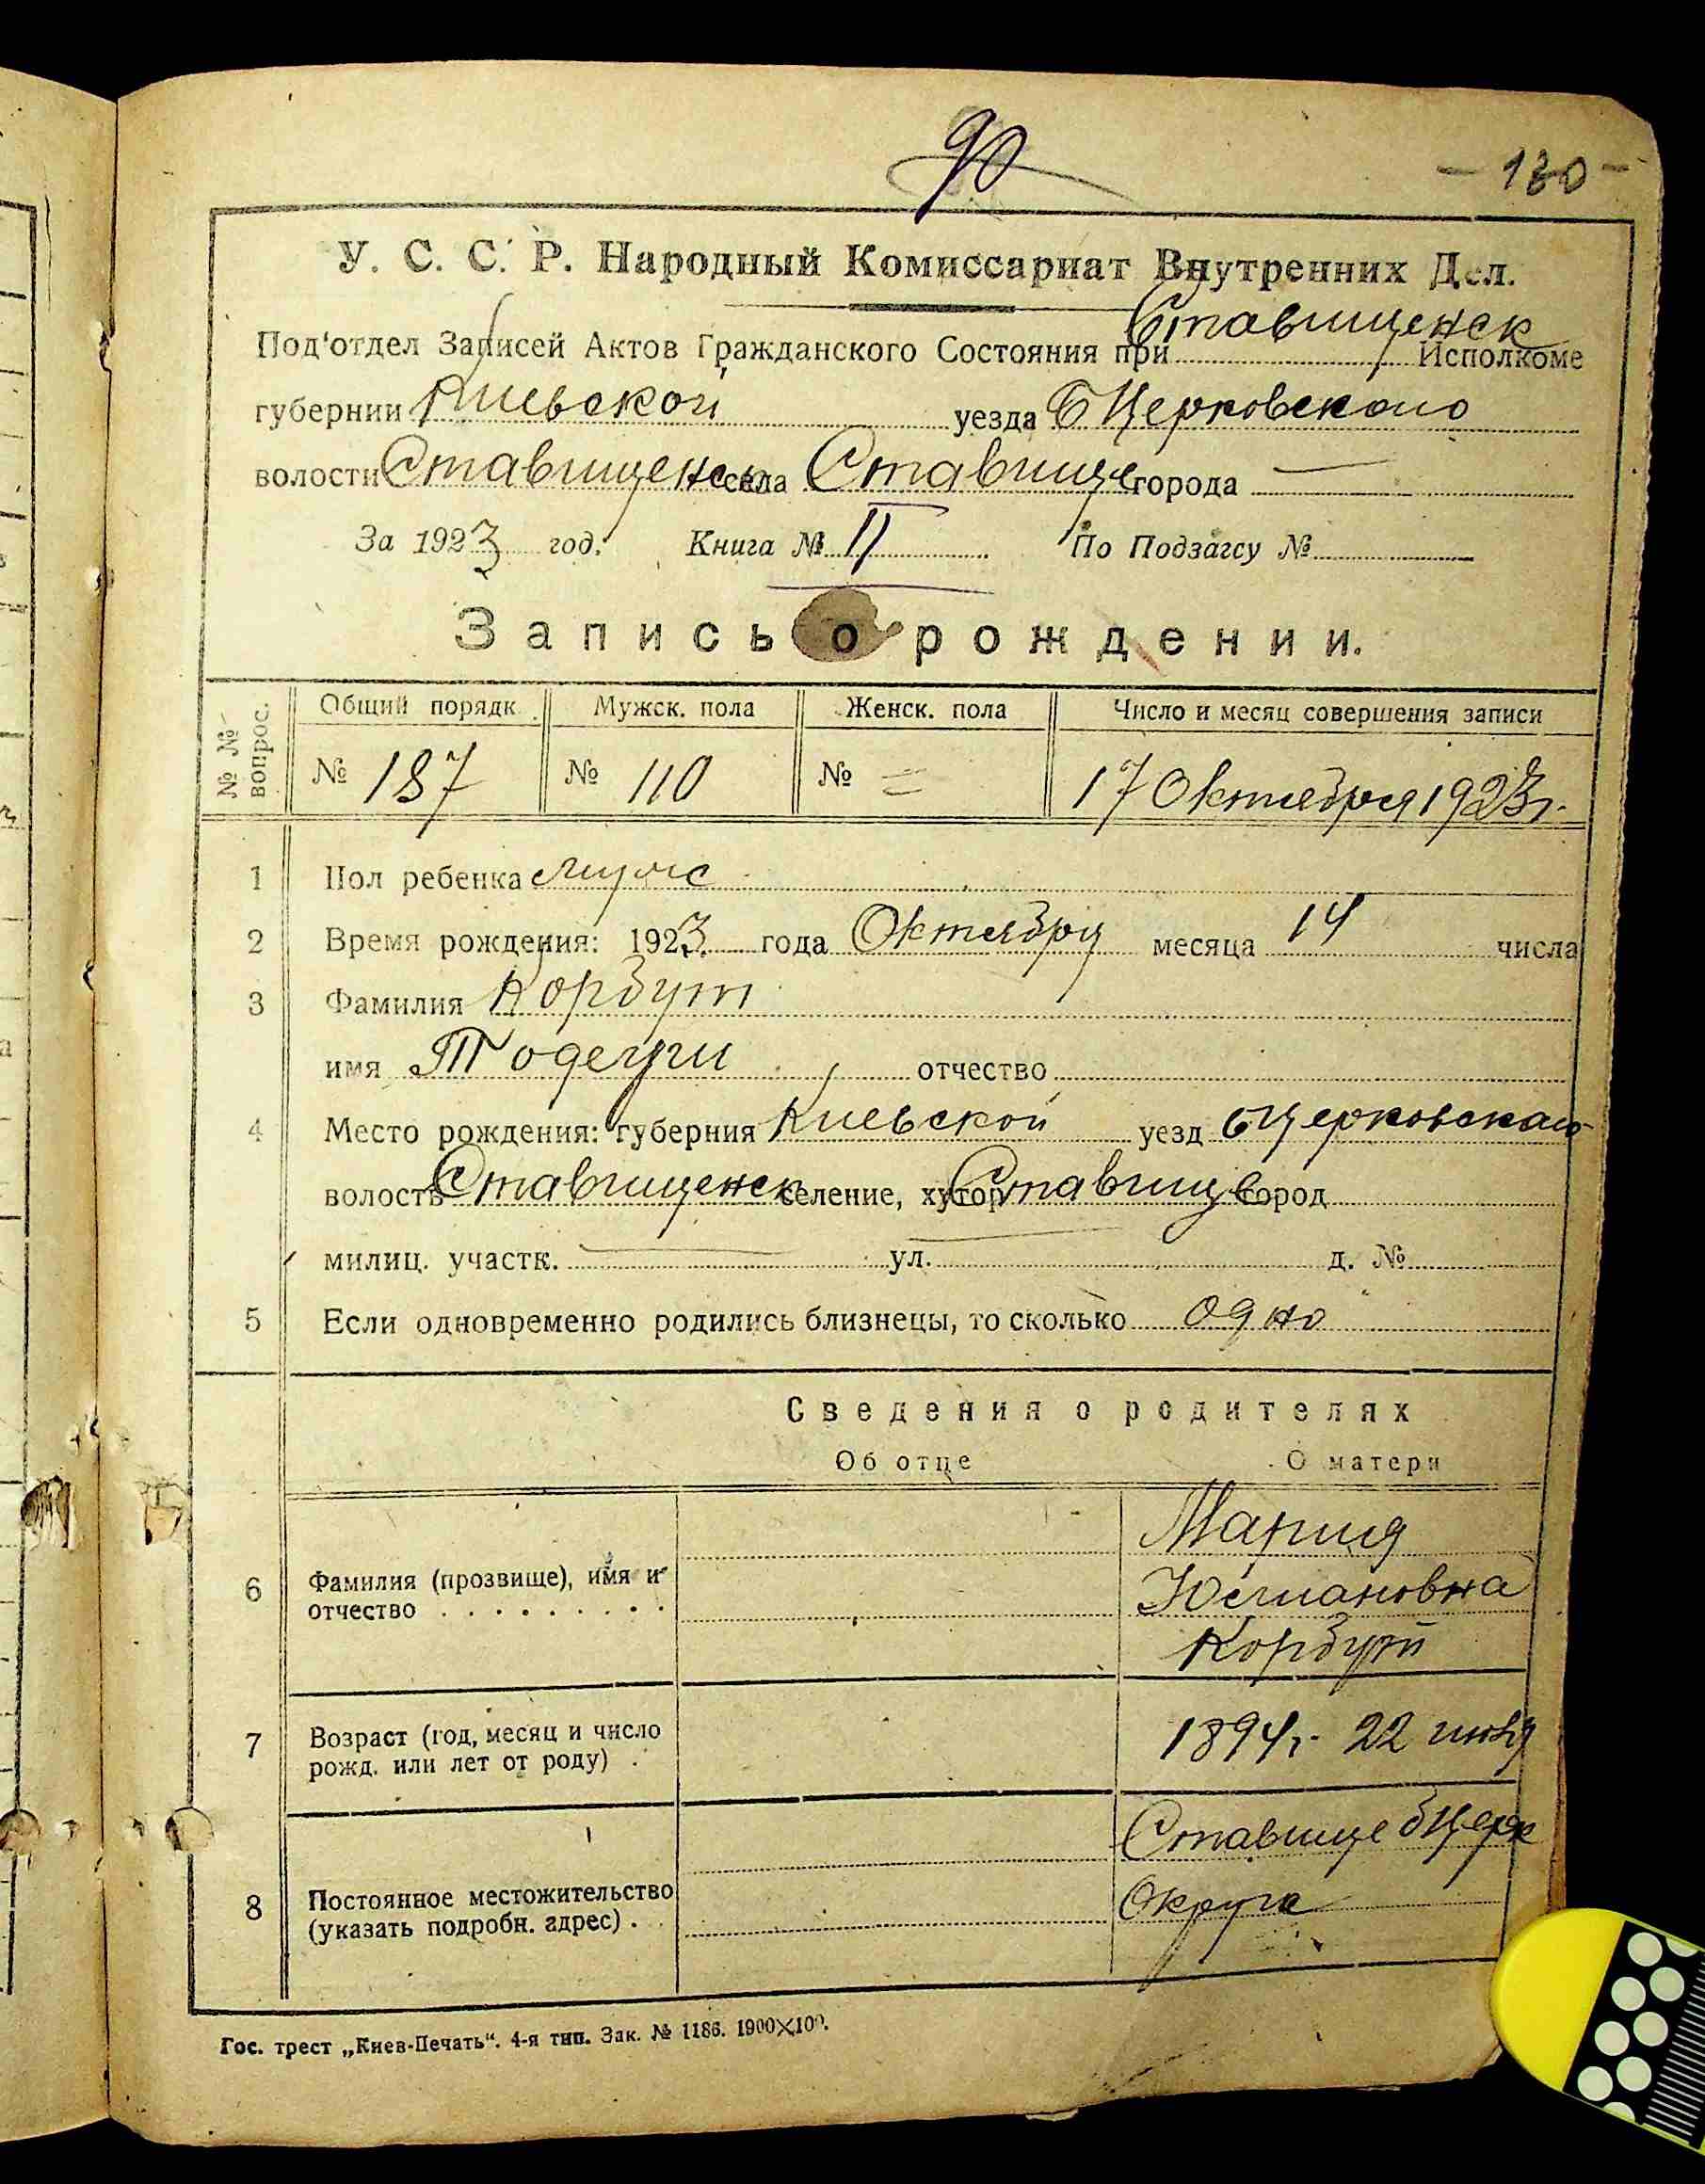 90
- 130 -
У. С. С. Р. Народный Комиссариат Внутренних Дел.
Под'отдел Записей Актов Гражданского Состояния при Ставищенск Исполкоме
губернии Киевской уезда БЦерковского
волости Ставищенск села Ставище города —
За 1923 год. Книга № II По Подзагсу №
Запись о рождении.
№ № вопрос. Общий порядк. Мужск. пола Женск. пола Число и месяц совершения записи
№ 187 № 110 № = 17 Октября 1923 г.
1 Пол ребенка муж
2 Время рождения: 1923 года Октября месяца 14 числа
3 Фамилия Корбут
имя отчество
4 Место рождения: губерния Киевской уезд бЦерковская
волость Ставищенск селение, хутор Ставище город
милиц. участк. — ул. д. №
5 Если одновременно родились близнецы, то сколько одно
Сведения о родителях
Об отце О матери
Мария
6 Фамилия (прозвище), имя и отчество
Корбут
7 Возраст (год, месяц и число рожд. или лет от роду) 1894 г. 22
Ставище бЦерк
8 Постоянное местожительство (указать подробн. адрес) Округа
Гос. трест „Киев-Печать“. 4-я тип. Зак. № 1186. 1900×100.